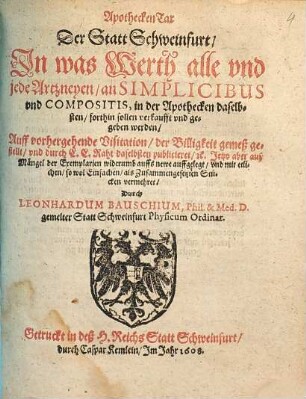 Apothecken Tax
Der Statt Schweinfurt/
In was Werth alle vnd
jede Artzneyen/ an SIMPLICIBUS
vnd COMPOSITIS, in der Apothecken daselb-
sten/ forthin sollen verkaufft vnd ge-
geben werden/
Auff vorhergehende Visitation/ der Billigkeit gemeß ge-
stellt/ vnd durch E. E. Raht daselbsten publiciret/ ꝛc. Jetzo aber auß
Mangel der Exemplarien widerumb auffs newe auffgelegt/ vnd mit etli-
chen/ so wol Einfachen/ als Zusammengesetzten Stü-
cken vermehret/
Durch
LEONHARDUM BAUSCHIUM, Phil. & Med. D.
gemelter Statt Schweinfurt Physicum Ordinar.
Getruckt in deß H. Reichs Statt Schweinfurt/
durch Caspar Kemlein/ Im Jahr 1608.